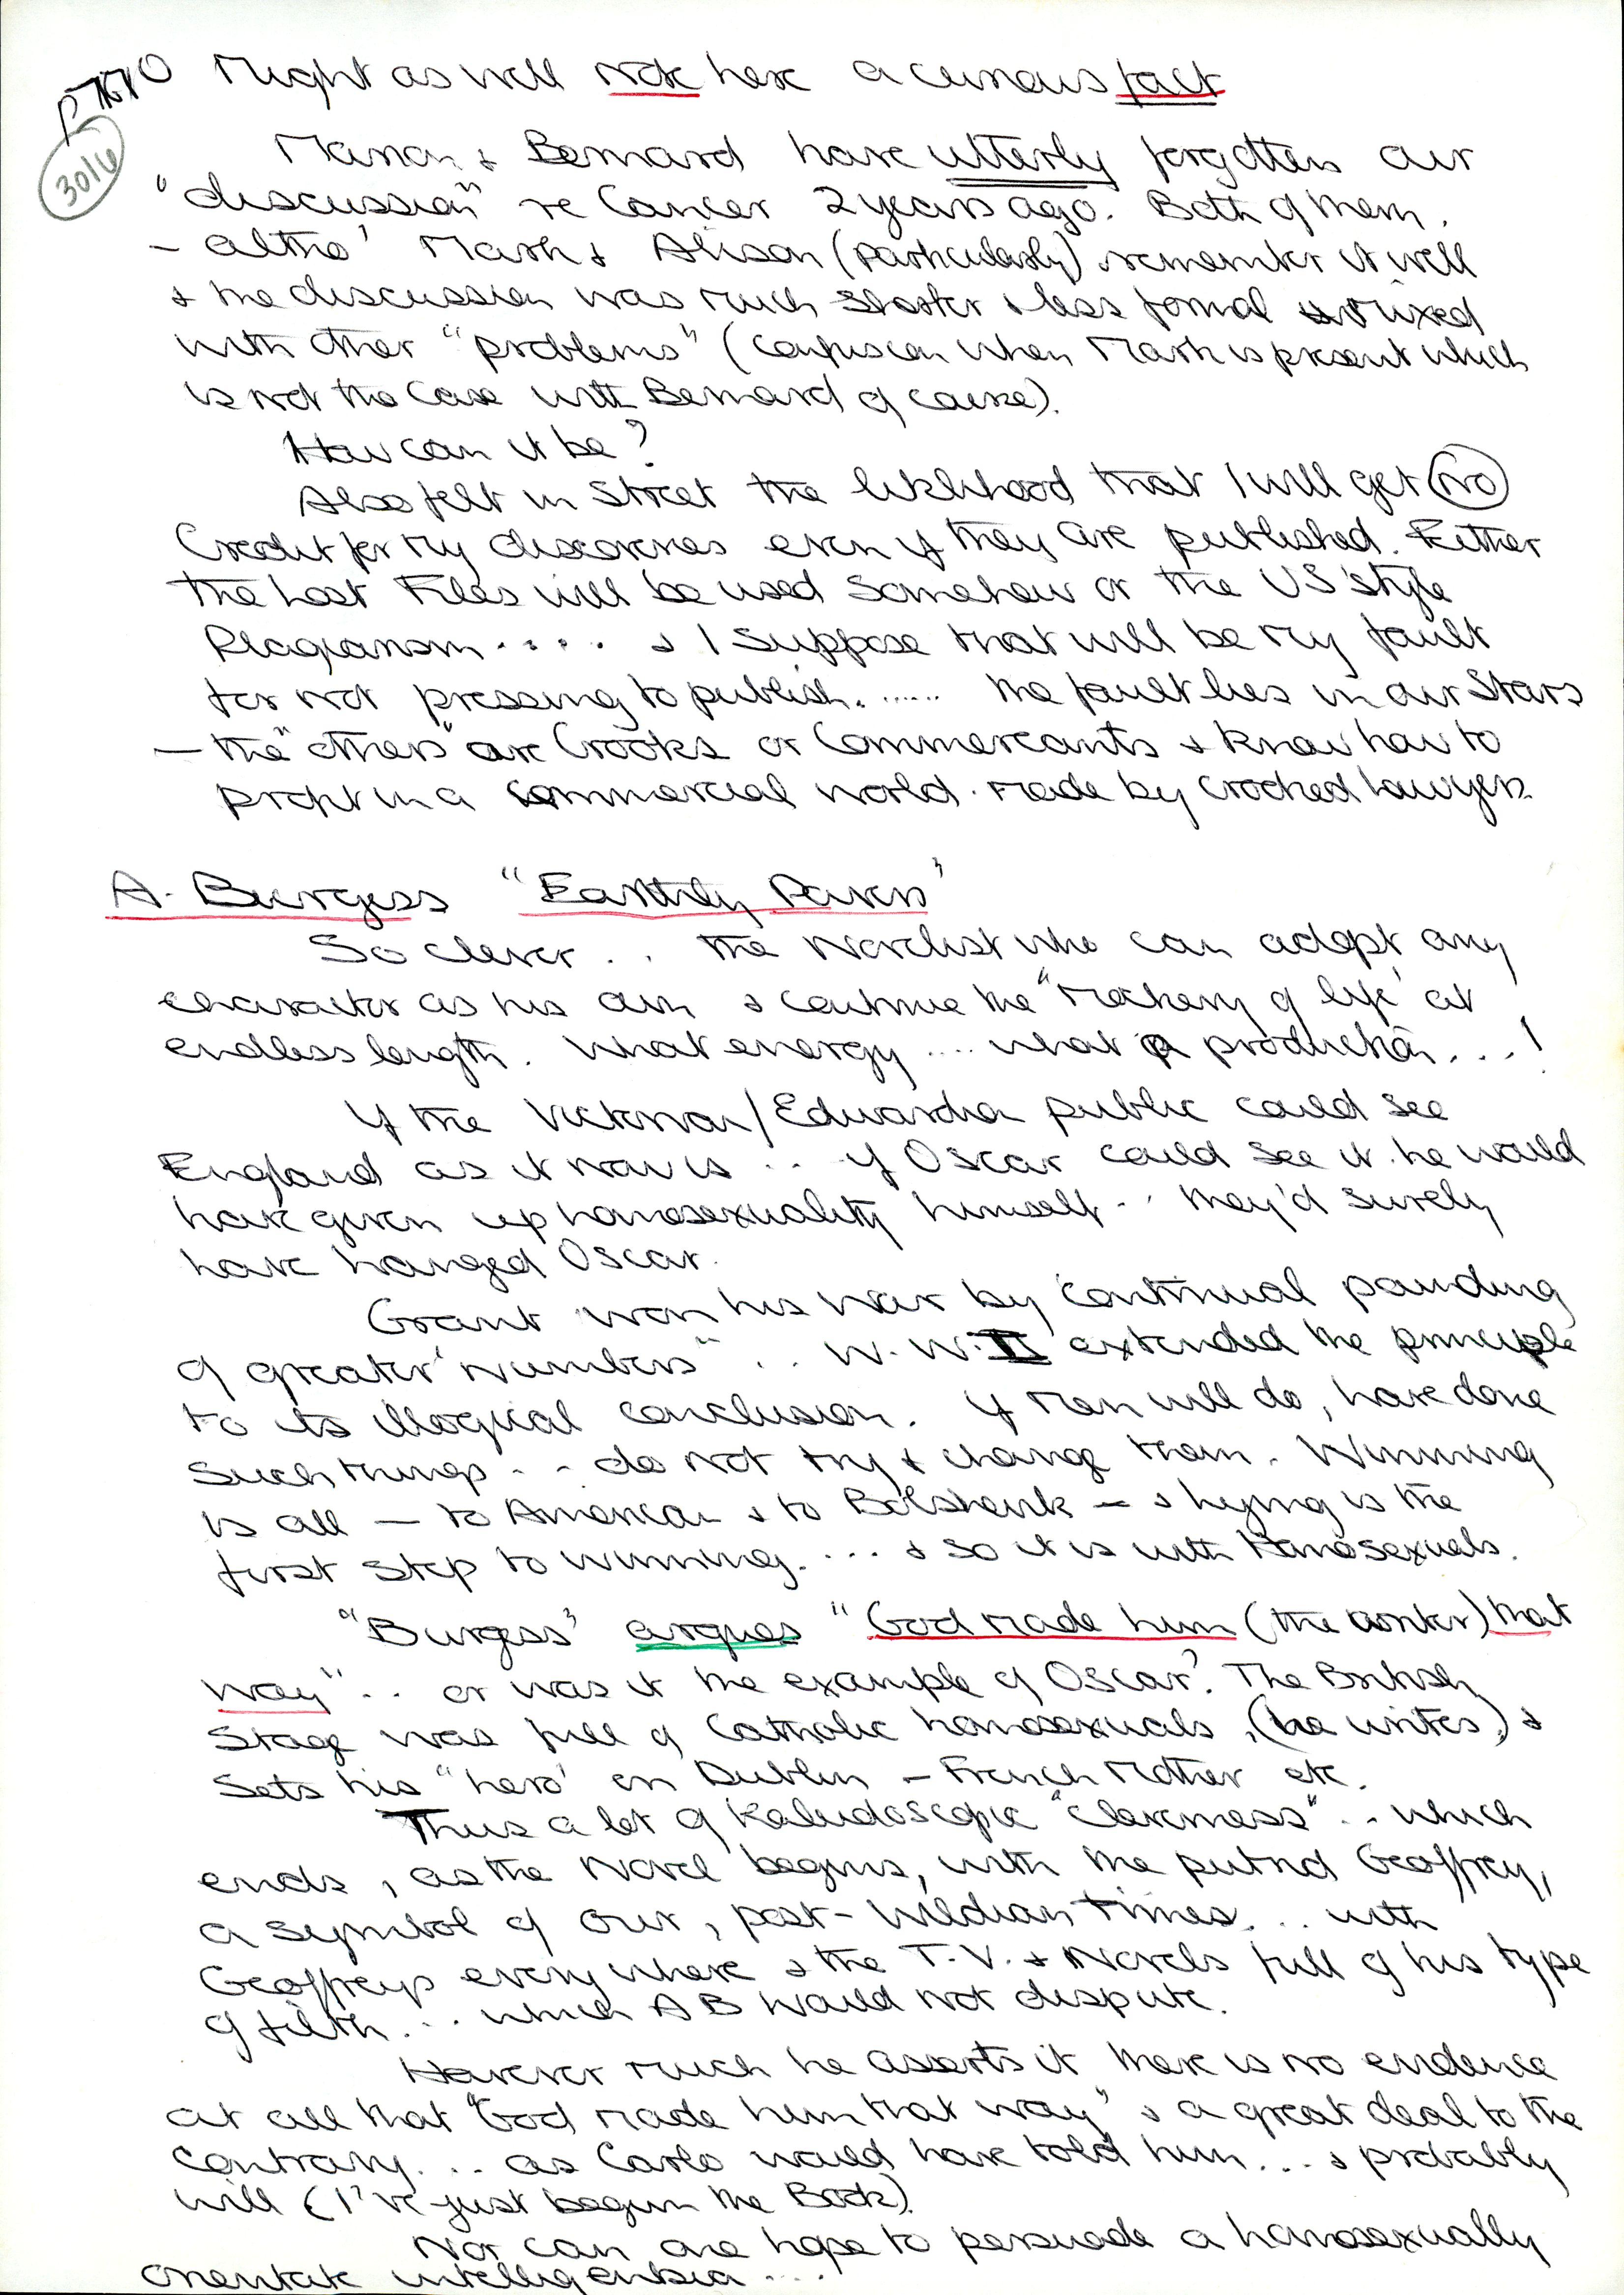 PTO Might as well note here a curious fact
3016
Marion & Bernard have utterly forgotten our
"discussion" re Cancer 2 years ago. Both of them.
- altho' Mark & Alison (particularly) remember it well
& the discussion was much shorter & less formal & mixed
with other "problems" (confusion when Mark is present which
is not the case with Bernard of course).
How can it be?
Also felt in Street the liklihood that I will get no
Credit for my discoveries even if they are published. Either
the Lost Files will be used somehow or the US style
Plagiarism.... & I suppose that will be my fault
for not pressing to publish....... the fault lies in our Stars
- the "others" are Crooks or Commercants & know how to
profit in a commercial world. made by crooked lawyers.
A. Burgess "Earthly Powers"
So clever .. the Novelist who can adopt any
character as his own & continue the "Mockery of life' at
endless length. What energy .... what a production...!
If the Victorian/Edwardian public could see
England as it now is .. if Oscar could see it he would
have given up homosexuality himself.. they'd surely
have hanged Oscar.
Grant won his war by 'continual pounding
of greater numbers" .. W.W.II extended the principle
to its illogical conclusion. If Men will do, have done
such things .. do not try & change them. Winning
is all - to American & to Bolshevik - & lying is the
first step to winning.... & so it is with Homosexuals.
"Burgess' argues "God made him (the writer) that
way".. or was it the example of Oscar? The British
Stage was full of Catholic homosexuals, (he writes) &
sets his "hero' on Dublin - French Mother etc.
Thus a lot of Kaleidoscopic "cleverness".. which
ends, as the Novel begins, with the putrid Geoffrey,
a symbol of our, post-Wildian times... with
Geoffreys everywhere & the T.V. & Novels full of his type
of filth... which AB would not dispute.
However much he asserts it there is no evidence
at all that "God made him that way" & a great deal to the
contrary... as Carlo would have told him... & probably
will (I've just begun the Book).
Nor can one hope to persuade a homosexually
orientate intelligentsia ....